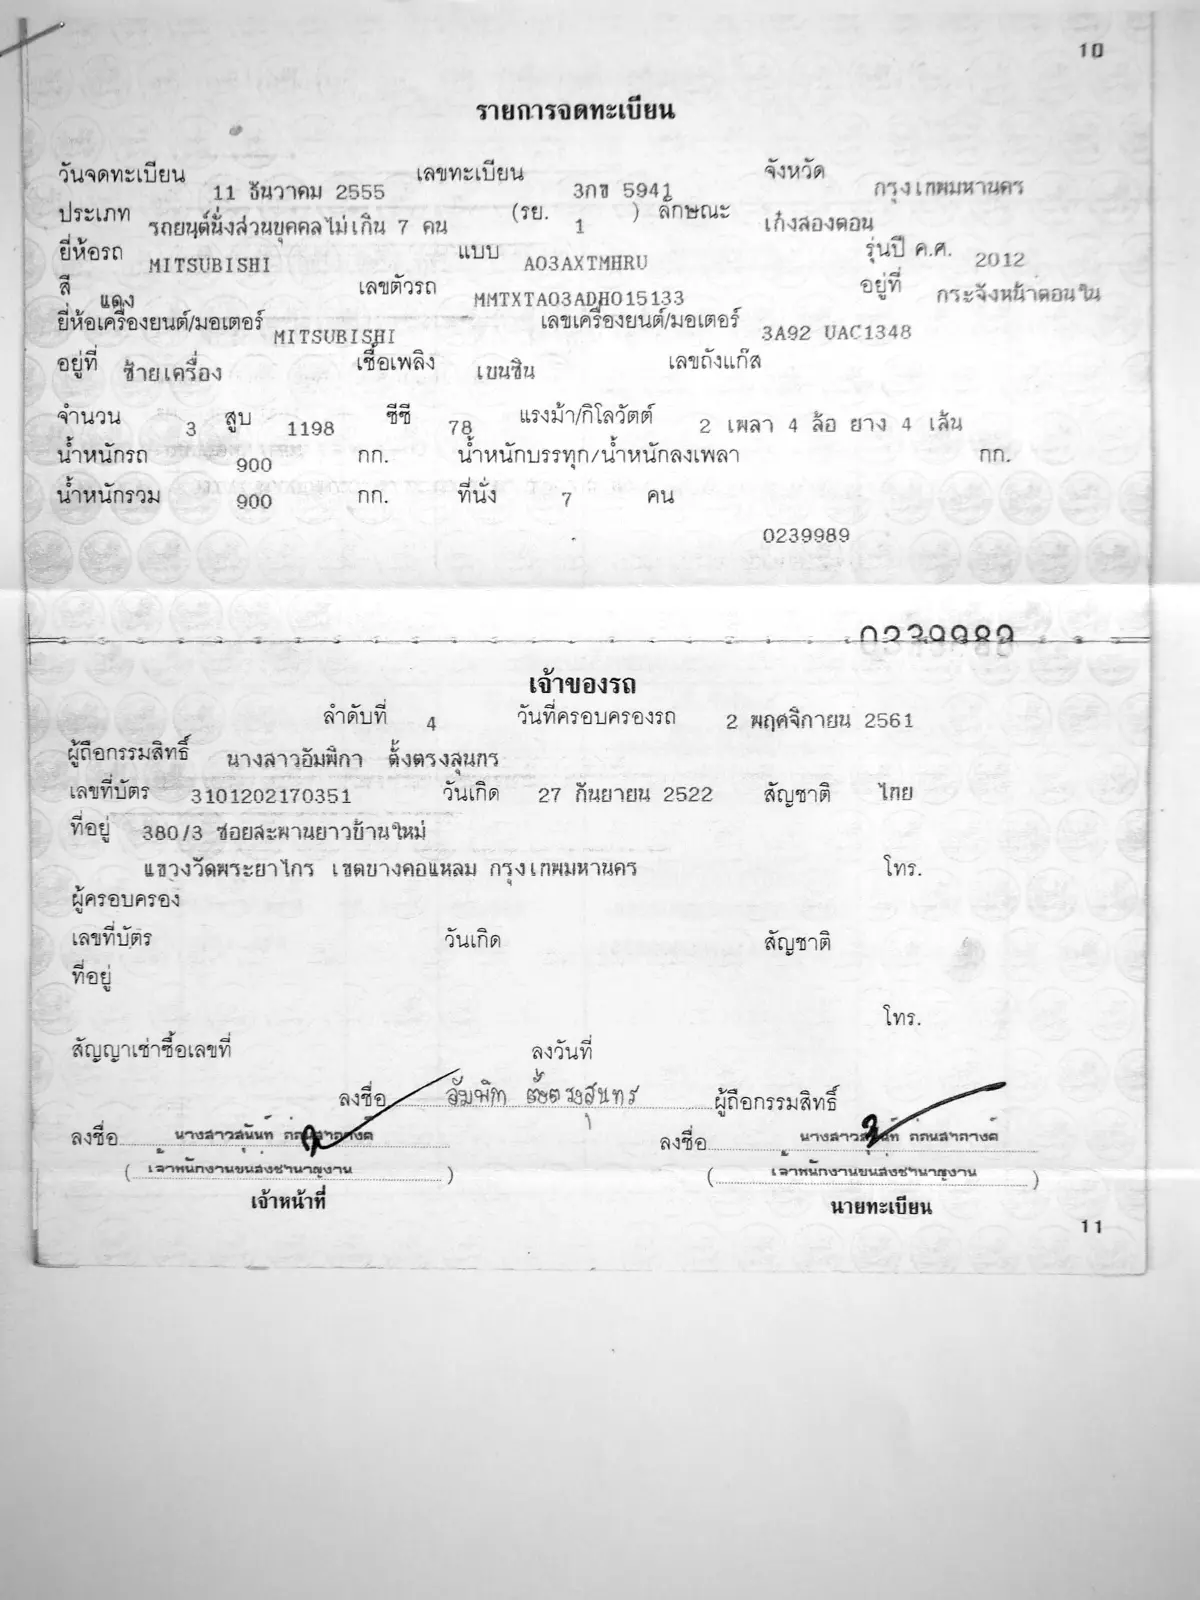 10
รายการจดทะเบียน
วันจดทะเบียน 11 ธันวาคม 2555 เลขทะเบียน 3กข 5941 จังหวัด กรุงเทพมหานคร
ประเภท รถยนต์นั่งส่วนบุคคลไม่เกิน 7 คน (รย. 1 ) ลักษณะ เก๋งสองตอน
ยี่ห้อรถ MITSUBISHI แบบ A03AXTMHRU รุ่นปี ค.ศ. 2012
สี แดง เลขตัวรถ MMTXTA03ADH015133 อยู่ที่ กระจังหน้าตอนใน
ยี่ห้อเครื่องยนต์/มอเตอร์ MITSUBISHI เลขเครื่องยนต์/มอเตอร์ 3A92 UAC1348
อยู่ที่ ซ้ายเครื่อง เชื้อเพลิง เบนซิน เลขถังแก๊ส
จำนวน 3 สูบ 1198 ซีซี 78 แรงม้า/กิโลวัตต์ 2 เพลา 4 ล้อ ยาง 4 เส้น
น้ำหนักรถ 900 กก. น้ำหนักบรรทุก/น้ำหนักลงเพลา กก.
น้ำหนักรวม 900 กก. ที่นั่ง 7 คน
0239989
0239989
เจ้าของรถ
ลำดับที่ 4 วันที่ครอบครองรถ 2 พฤศจิกายน 2561
ผู้ถือกรรมสิทธิ์ นางสาวอัมพิกา ตั้งตรงสุนทร
เลขที่บัตร 3101202170351 วันเกิด 27 กันยายน 2522 สัญชาติ ไทย
ที่อยู่ 380/3 ซอยสะพานยาวบ้านใหม่
แขวงวัดพระยาไกร เขตบางคอแหลม กรุงเทพมหานคร โทร.
ผู้ครอบครอง
เลขที่บัตร วันเกิด สัญชาติ
ที่อยู่
โทร.
สัญญาเช่าซื้อเลขที่ ลงวันที่
ลงชื่อ อัมพิกา ตั้งตรงสุนทร ผู้ถือกรรมสิทธิ์
ลงชื่อ นางสาวสุนันท์ ลงชื่อ นางสาวสุนันท์
(เจ้าพนักงานขนส่งชำนาญงาน) (เจ้าพนักงานขนส่งชำนาญงาน)
เจ้าหน้าที่ นายทะเบียน
11